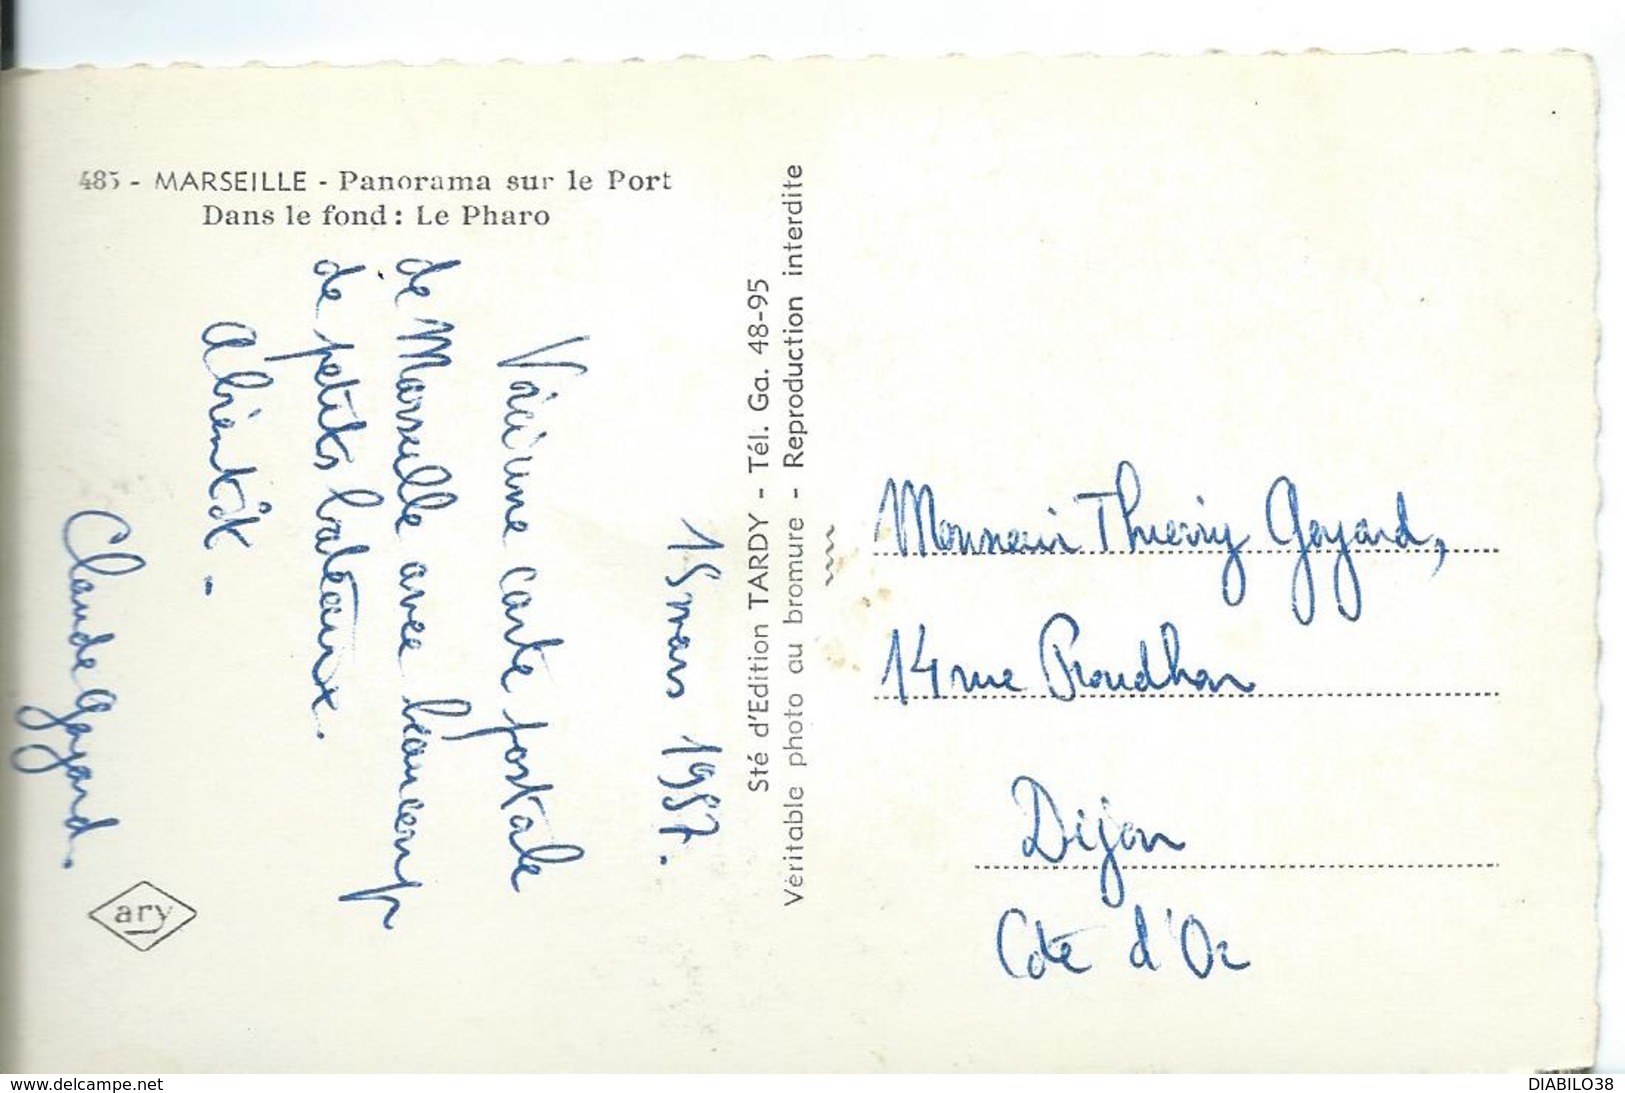 485 - MARSEILLE - Panorama sur le Port
Dans le fond : Le Pharo
15 mars 1957.
Voici une carte postale
de Marseille avec beaucoup
de petits bateaux.
A bientôt -
Claude Goyard.
ary
Sté d'Edition TARDY - Tél. Ga. 48-95
Véritable photo au bromure - Reproduction interdite
Monsieur Thierry Goyard,
14 rue Proudhon
Dijon
Côte d'Or
www.delcampe.net
DIABILO38